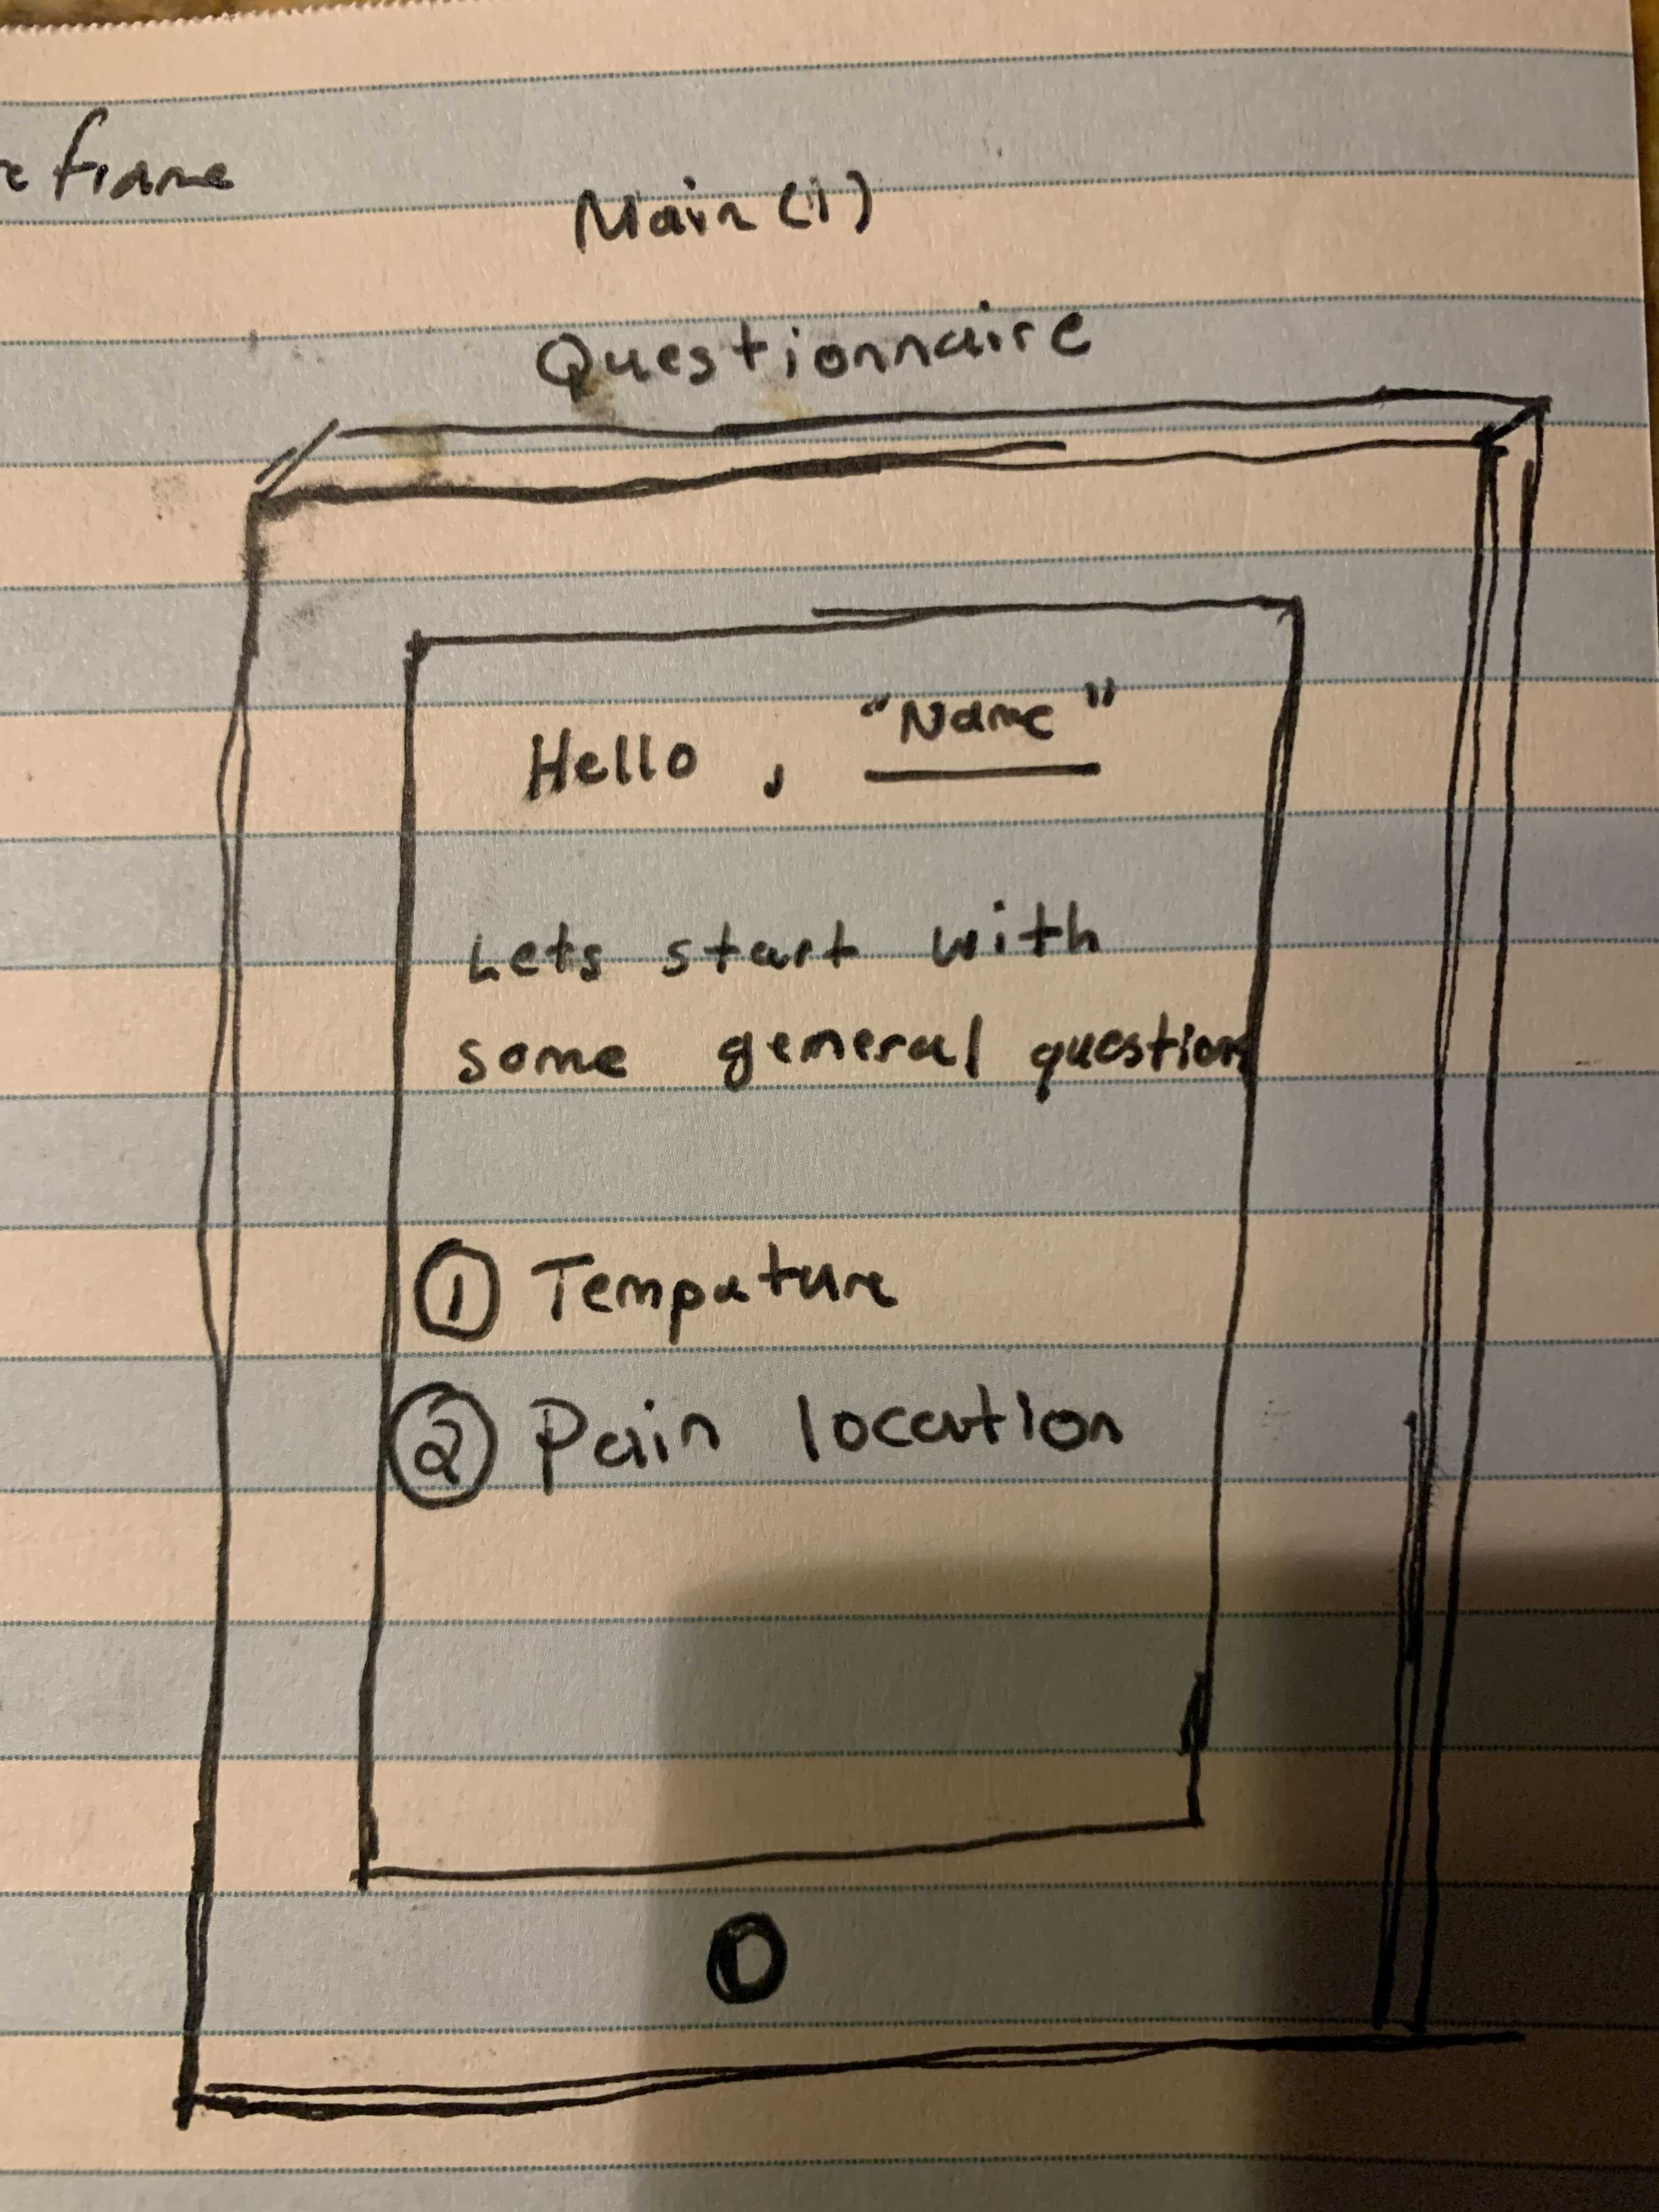 frame
Main (1)
Questionnaire
Hello , "Name"
Lets start with
some general question
① Tempature
② Pain location